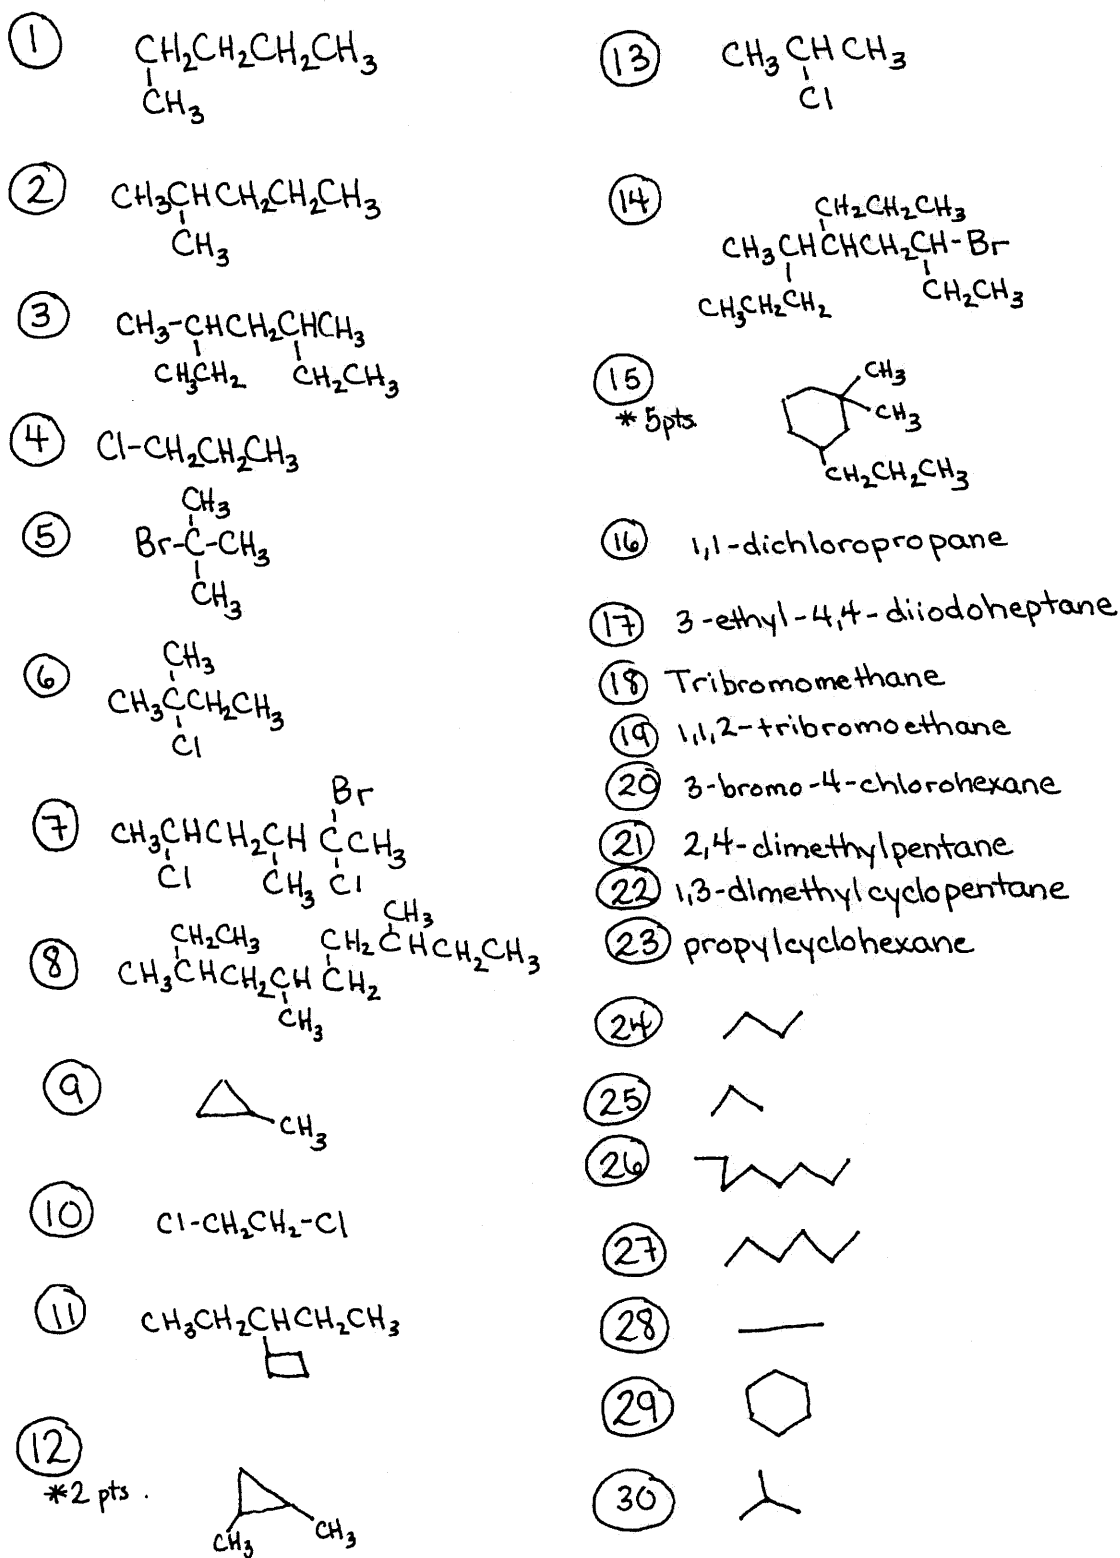 1
CH₂CH₂CH₂CH₃
CH₃
2
CH₃CHCH₂CH₂CH₃
CH₃
3
CH₃-CHCH₂CHCH₃
CH₃CH₂ CH₂CH₃
4
Cl-CH₂CH₂CH₃
5
CH₃
Br-C-CH₃
CH₃
6
CH₃
CH₃CCH₂CH₃
Cl
7
Br
CH₃CHCH₂CH CCH₃
Cl CH₃ Cl
8
CH₃
CH₂CH₃ CH₂CHCH₂CH₃
CH₃CHCH₂CH CH₂
CH₃
9
CH₃
10
Cl-CH₂CH₂-Cl
11
CH₃CH₂CHCH₂CH₃
12
*2 pts.
CH₃ CH₃
13
CH₃CHCH₃
Cl
14
CH₂CH₂CH₃
CH₃CHCHCH₂CH-Br
CH₃CH₂CH₂ CH₂CH₃
15
*5pts.
CH₃
CH₃
CH₂CH₂CH₃
16 1,1-dichloropropane
17 3-ethyl-4,4-diiodoheptane
18 Tribromomethane
19 1,1,2-tribromoethane
20 3-bromo-4-chlorohexane
21 2,4-dimethylpentane
22 1,3-dimethylcyclopentane
23 propylcyclohexane
24
25
26
27
28
29
30